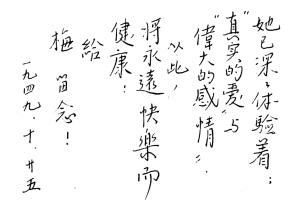 她已深々体驗着：
“真实的爱”与
“偉大的感情”．
以此，
将永遠快樂而
健康！
給
梅 留念！
一九四九．十．廿五